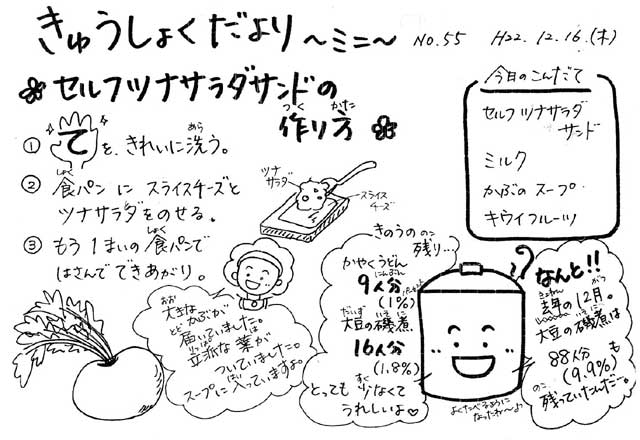 きゅうしょくだより ～ミニ～ No.55 H22.12.16.(木)
セルフツナサラダサンドの
作り方
つく かた
① てを、きれいに洗う。
あら
② 食パンに スライスチーズと
しょく
ツナサラダをのせる。
③ もう1まいの食パンで
しょく
はさんで できあがり。
ツナ
サラダ
スライス
チーズ
今日のこんだて
セルフツナサラダ
サンド
ミルク
かぶのスープ
キウイフルーツ
おお
大きな
かぶが
とど
届いていました。
りっぱ は
立派な葉が
ついていました。
はい
スープに入っていますよ。
きのうの のこ
残り…
かやくうどん
にんぶん
9人分
(1%)
だいず いそに
大豆の磯煮
16人分
(1.8%)
すく
とっても 少なくて
うれしいよ♡
なんと!!
きょねん がつ
去年の12月。
いそに
大豆の磯煮は
88人分も
(9.9%)
のこ
残っていたんだ～。
よくたべるように
なったわ～♪